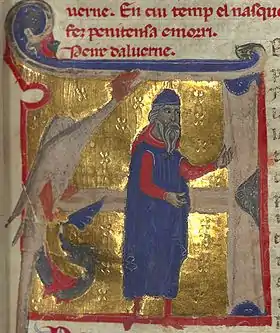 uerne. En cui temp el nasque
fer penitensa e morri.
Peire daluerne.